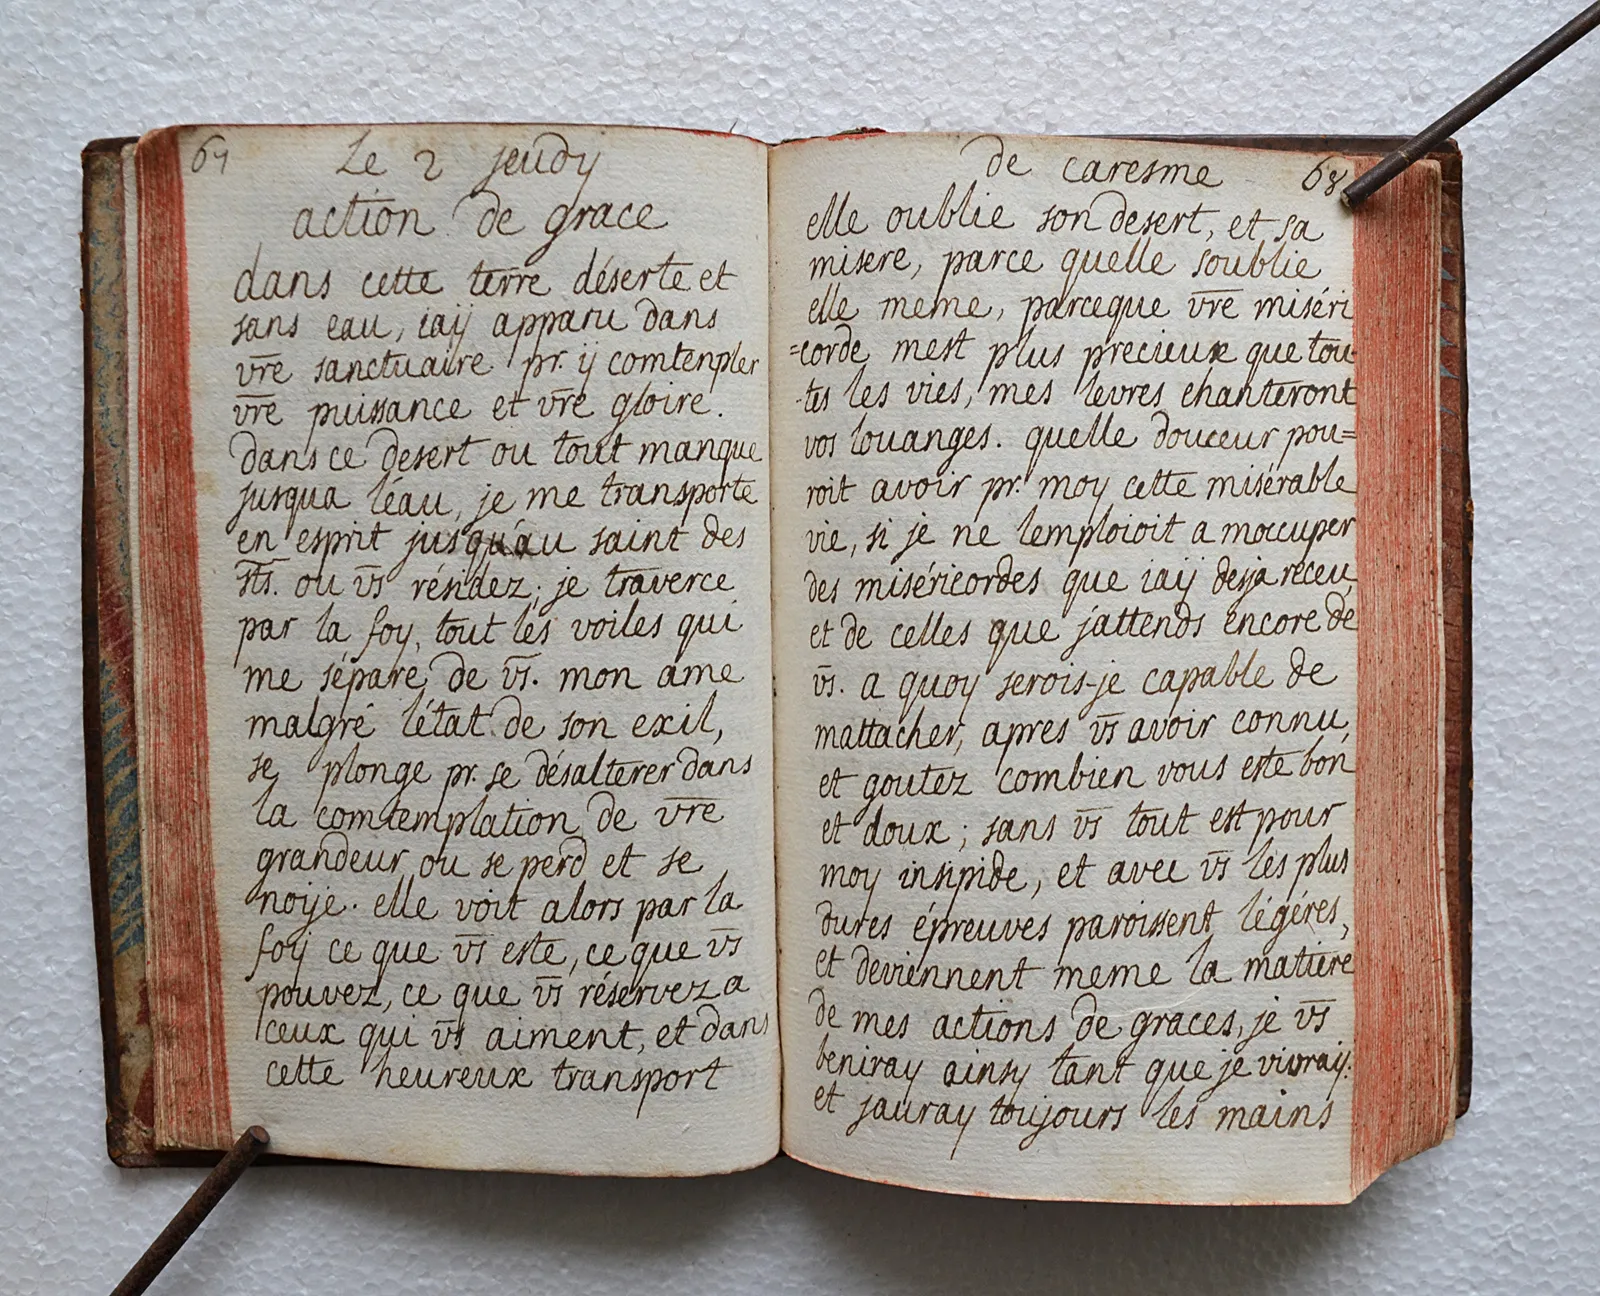 67 Le 2 jeudy
action de grace
dans cette terre déserte et
sans eau, iaÿ apparu dans
vr̅e sanctuaire pr. ÿ comtenpler
vr̅e puissance et vr̅e gloire.
dans ce desert ou tout manque
jusqua léau, je me transporte
en esprit jusqu'au saint des
st̅s. ou vs̅ résidez; je traverce
par la foy, tout les voiles qui
me sépare de vs̅. mon ame
malgré létat de son exil,
se plonge pr. se désalterer dans
la comtemplation de vr̅e
grandeur ou se perd et se
noije. elle voit alors par la
foij ce que vs̅ este, ce que vs̅
pouvez, ce que vs̅ réservez a
ceux qui vs̅ aiment, et dans
cette heureux transport
de caresme 68
elle oublie son desert, et sa
misere, parce quelle soublie
elle meme, parceque vr̅e miséri
=corde mest plus precieux que tou
-tes les vies, mes levres chanteront
vos louanges. quelle douceur pou=
roit avoir pr. moy cette misérable
vie, si je ne lemploioit a moccuper
des miséricordes que iaÿ desja receu,
et de celles que jattends encore de
vs̅. a quoy serois-je capable de
mattacher, apres vs̅ avoir connu,
et goutez combien vous este bon
et doux; sans vs̅ tout est pour
moy insipide, et avec vs̅ les plus
dures épreuves paroissent légéres,
et deviennent meme la matiere
de mes actions de graces, je vs̅
beniray ainsy tant que je vivray.
et jauray toujours les mains